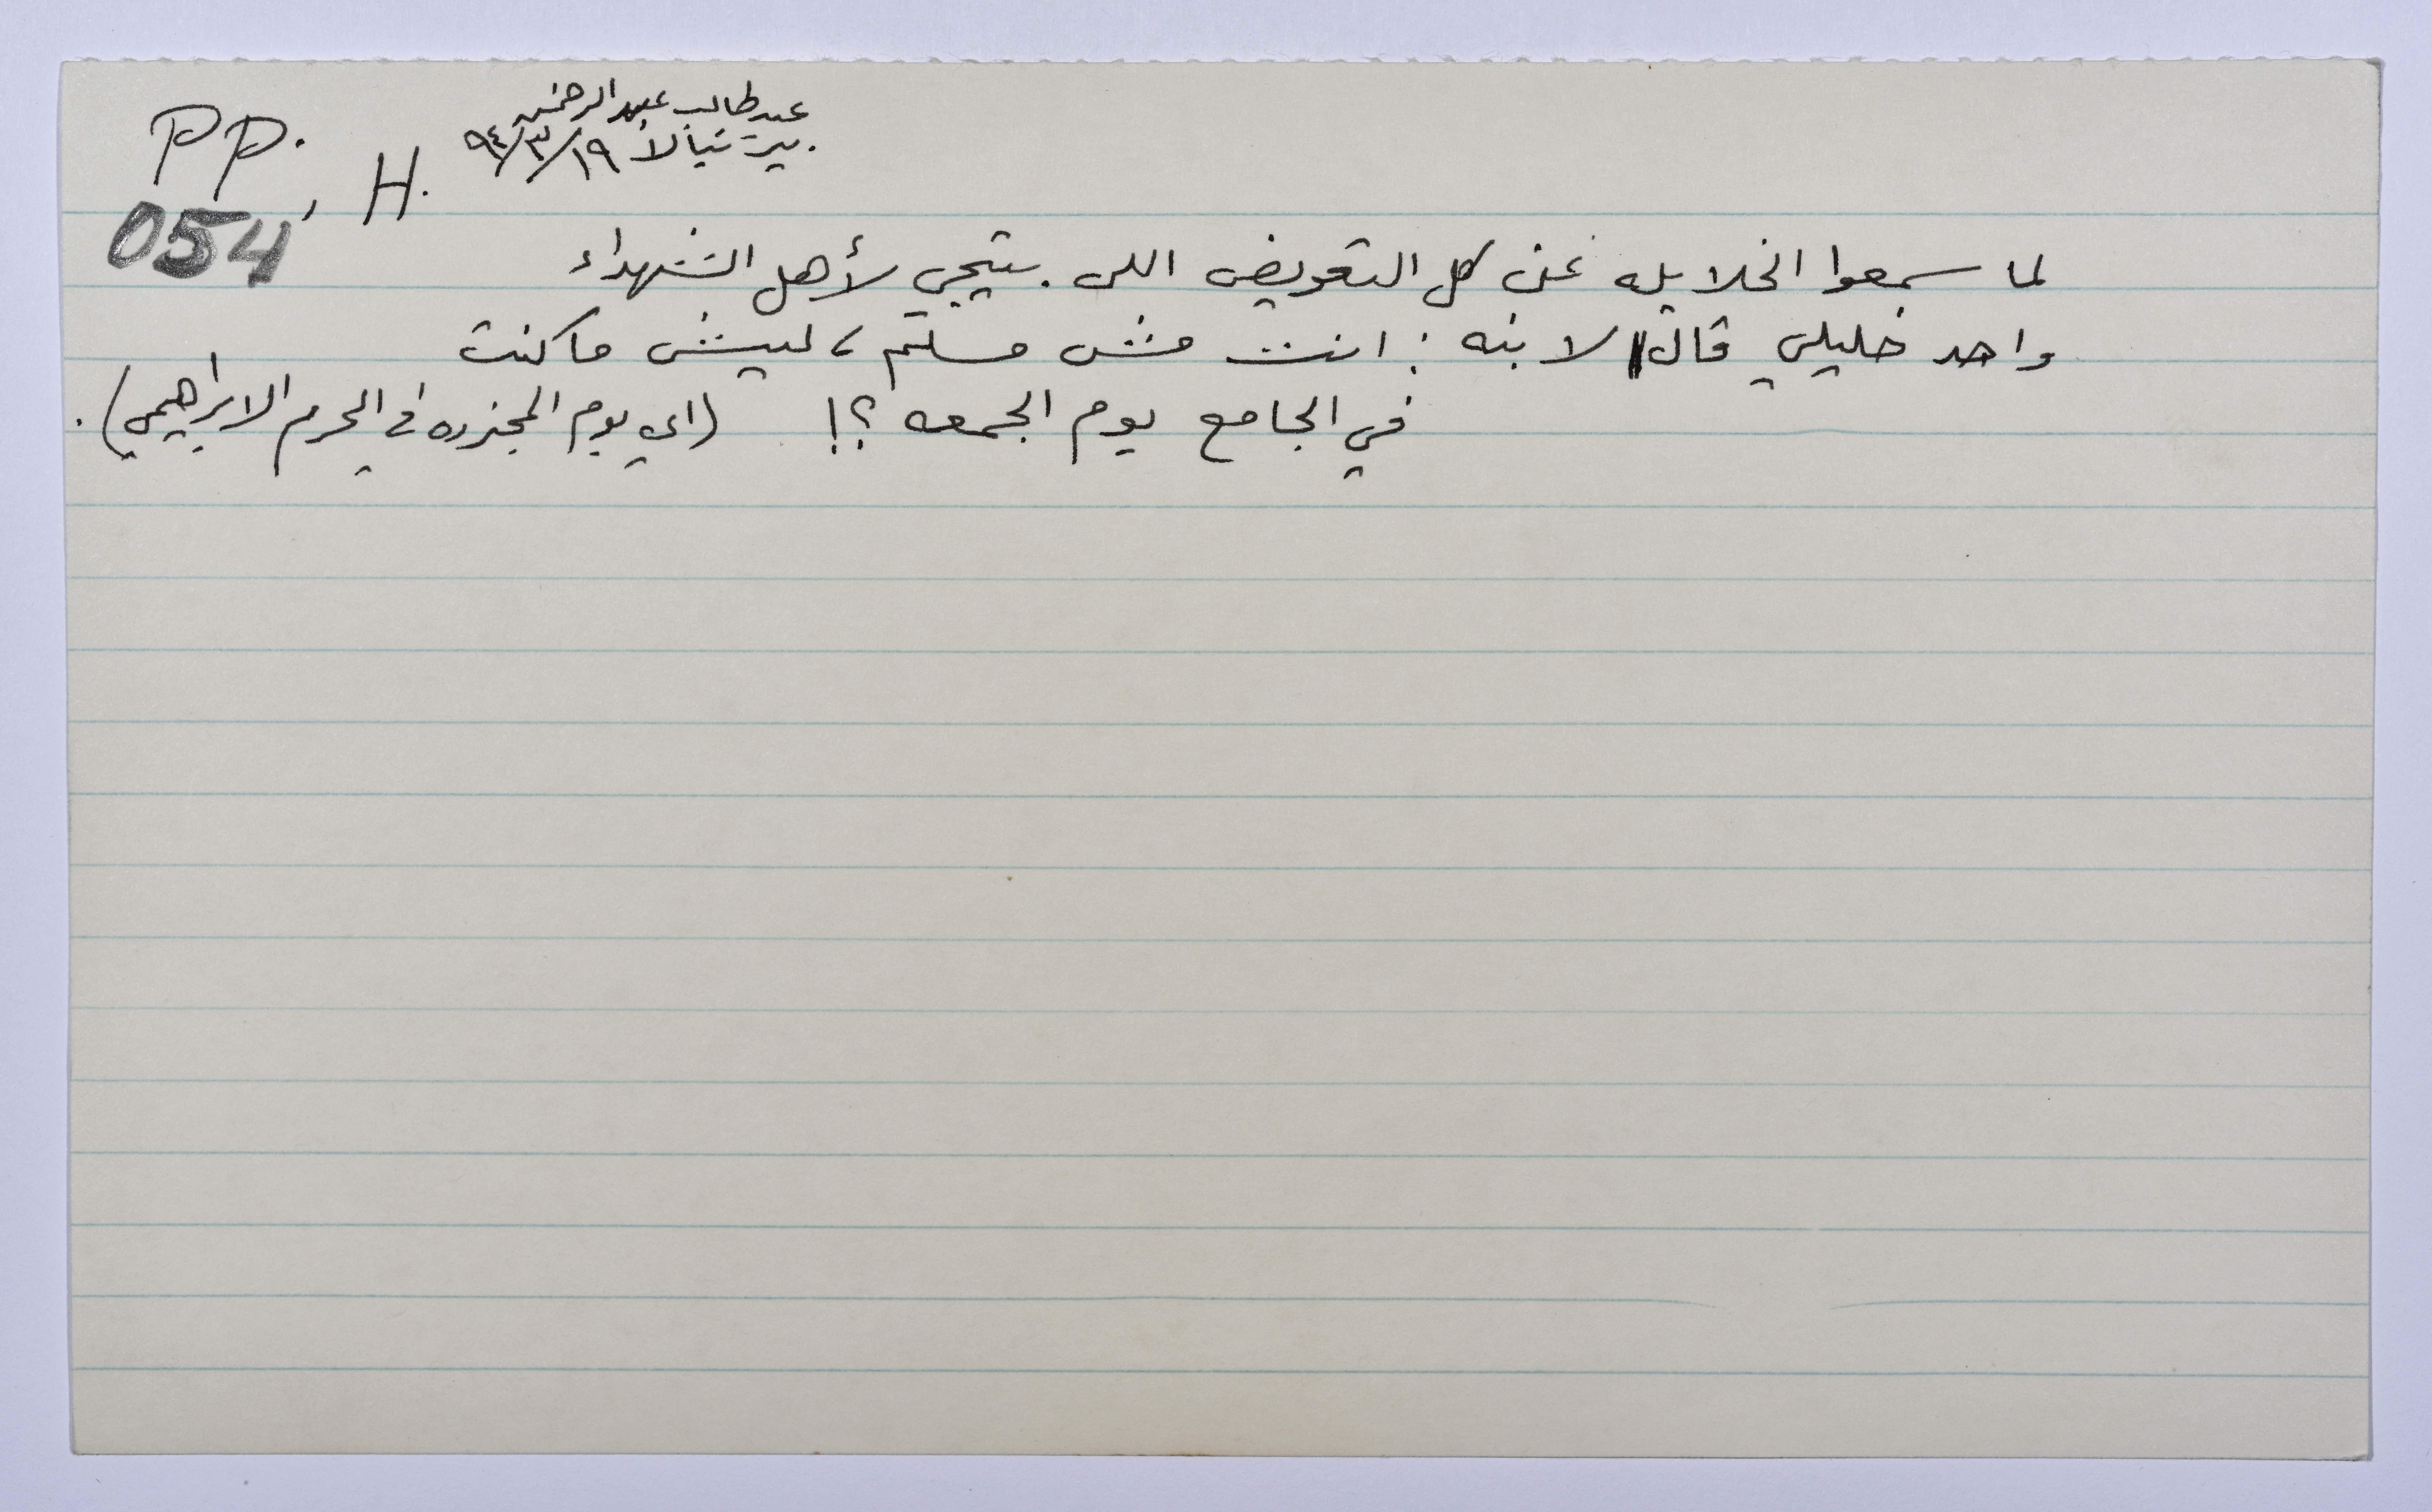 PP.
054, H.
عبد طالب عبد الرحمن
بيت نبالا ١٩/٣/٩٤
لما سمعوا الخلايله عن كل التعويض اللي بتيجي لأهل الشهداء
واحد خليلي قال لابنه : انت مش مسلم، ليش ما كنت
في الجامع يوم الجمعه ؟! (اي يوم المجزره في الحرم الابراهيمي).